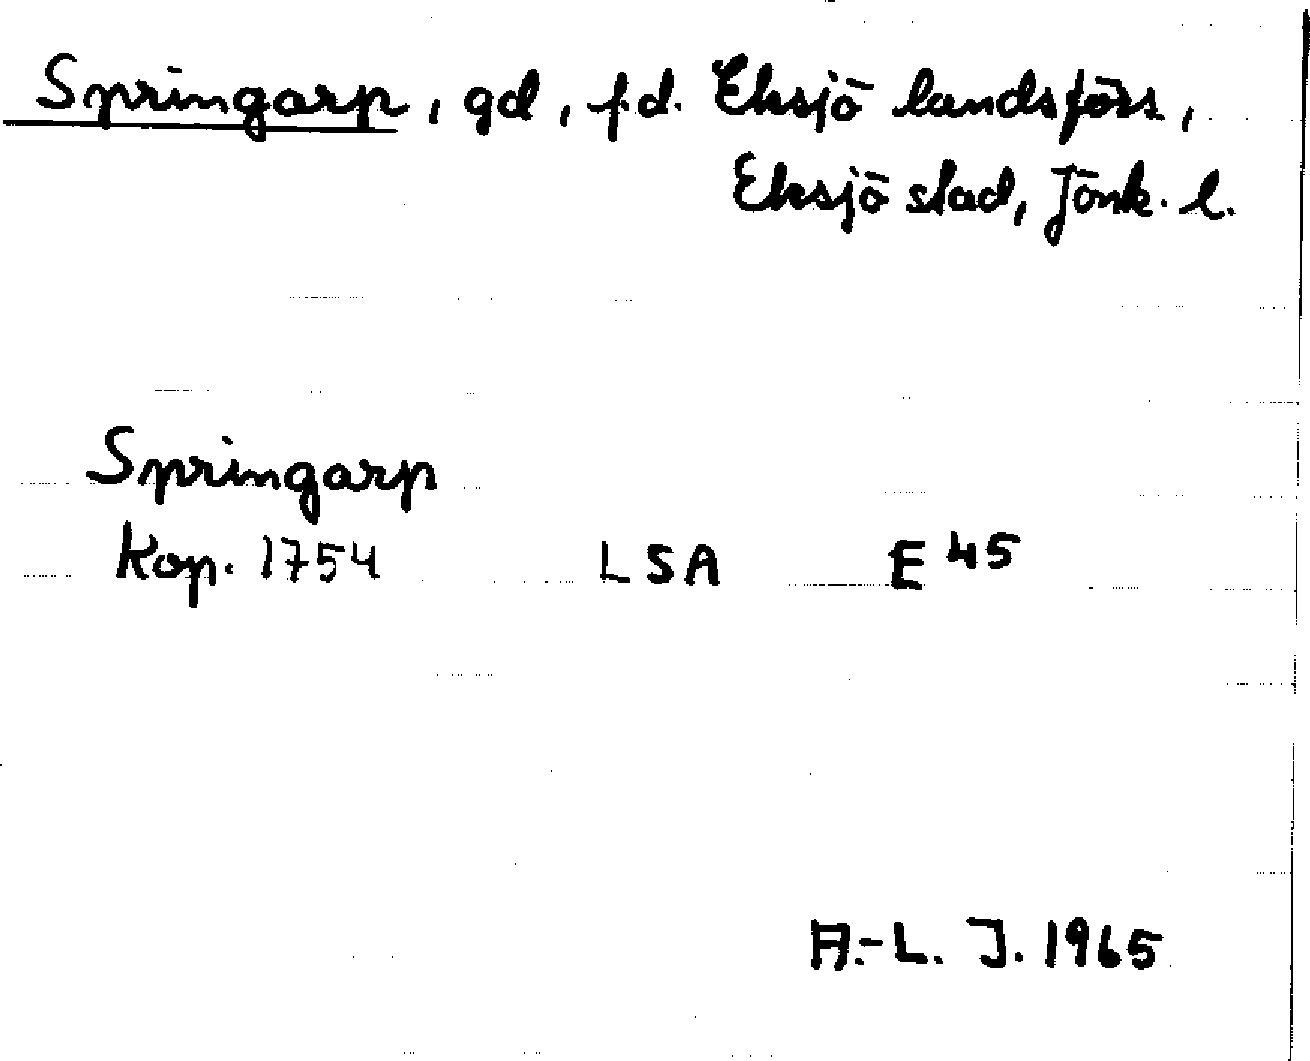 Springarp, gd, f.d. Eksjö landsförs,
Eksjö stad, Jönk. l.
Springarp
Kop. 1754 LSA E 45
A.-L. J. 1965